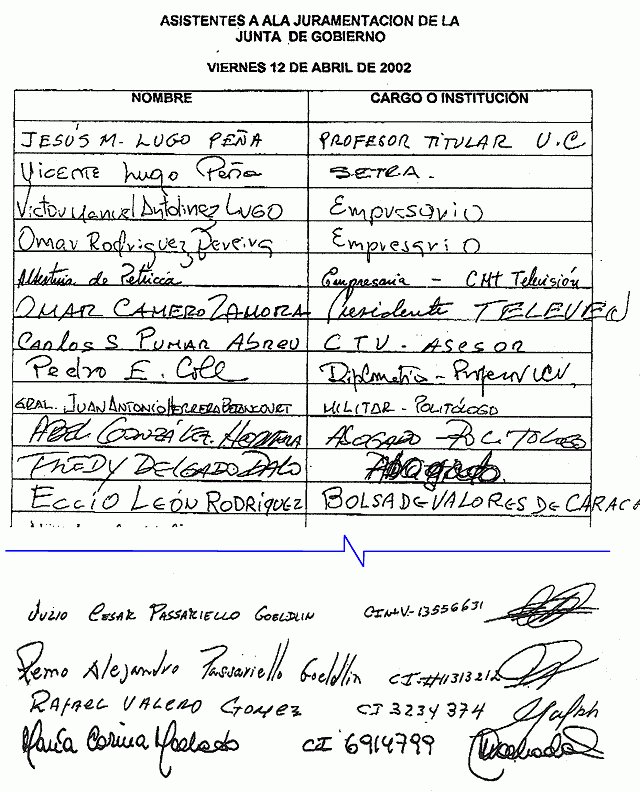 ASISTENTES A ALA JURAMENTACION DE LA
JUNTA DE GOBIERNO
VIERNES 12 DE ABRIL DE 2002
NOMBRE CARGO O INSTITUCIÓN
JESÚS M. LUGO PEÑA PROFESOR TITULAR U.C
Vicente Lugo Peña SETRA.
Victor Manuel Antolinez LUGO Empresario
Omar Rodriguez Pereira Empresario
de Petricca Empresaria - CMT Televisión
OMAR CAMERO ZAMORA Presidente TELEVEN
Carlos S PUMAR ABREU CTV - ASESOR
Pedro E. Coll Diplomático - Profesor UCV.
GRAL. JUAN ANTONIO HERRERA BETANCOURT MILITAR - POLITÓLOGO
ABEL GONZÁLEZ HERRERA ABOGADO - POLITOLOGO
FREDY DELGADO Abogado
ECCIO LEÓN RODRÍGUEZ BOLSA DE VALORES DE CARACA
JULIO CESAR PASSARIELLO GOELDLIN CI#V-13556631
Remo Alejandro Passariello Goeldlin CI#11313212
RAFAEL VALERO GOMEZ CI 3234374
María Corina Machado CI 6914799